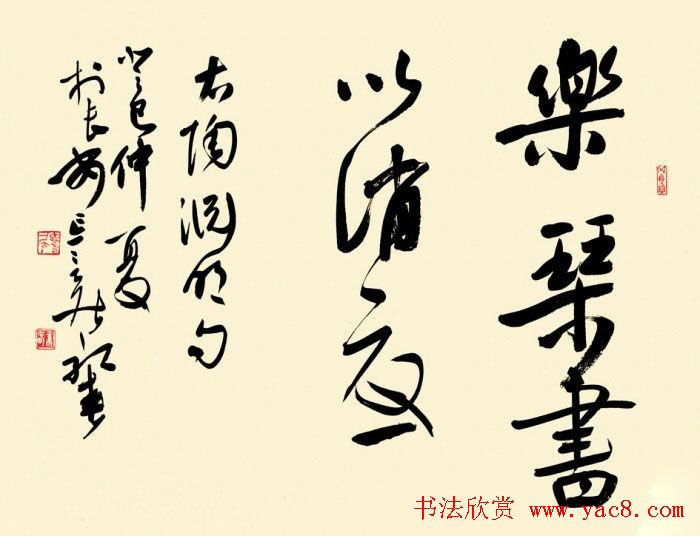 樂琴書
以消憂
右陶渊明句
癸巳仲夏
於長安
书法欣赏 www.yac8.com